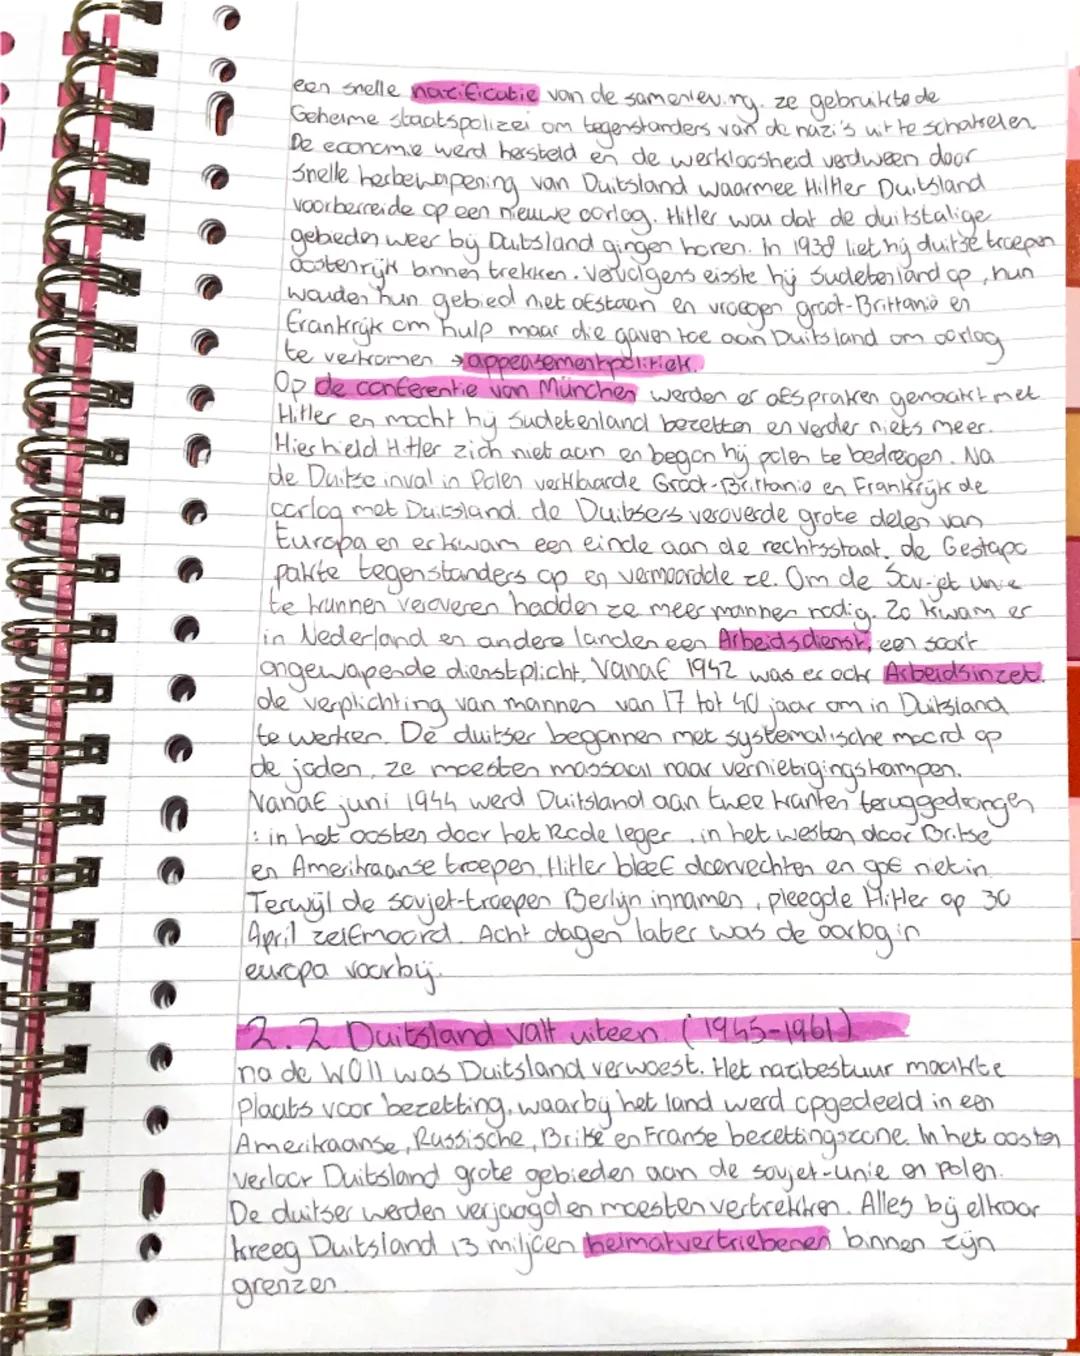 een snelle nazificatie van de samenleving. ze gebruikte de
Geheime staatspolizei om tegenstanders van de nazi's uit te schakelen
De economie werd hersteld en de werkloosheid verdween door
Snelle herbewapening van Duitsland waarmee Hiltler Duitsland
voorberreide op een nieuwe oorlog. Hitler wou dat de duitstalige
gebieden weer bij Duitsland gingen horen. In 1938 liet hij duitse troepen
Oostenrijk binnen trekken. Vervolgens eisste hij Sudetenland op, hun
wouden hun gebied niet afstaan en vroegen groot-Brittanië en
frankrijk om hulp maar die gaven toe aan Duitsland om oorlog
te verkomen → appeasementpolitiek.
Op de conferentie van München werden er afspraken gemaakt met
Hitler en mocht hij Sudetenland bezetten en verder niets meer.
Hier hield Hitler zich niet aan en begon hij polen te bedreigen. Na
de Duitse inval in Polen verklaarde Groot-Brittanië en Frankrijk de
oorlog met Duitsland. de Duitsers veroverde grote delen van
Europa en er kwam een einde aan de rechtsstaat. de Gestapo
pakte tegenstanders op en vermoordde ze. Om de Sovjet unie
te kunnen veroveren hadden ze meer mannen nodig. Zo kwam er
in Nederland en andere landen een Arbeidsdienst, een soort
ongewapende dienstplicht. Vanaf 1942 was er ook Arbeidsinzet.
de verplichting van mannen van 17 tot 40 jaar om in Duitsland
te werken. De duitser begonnen met systematische moord op
de joden, ze moesten massaal naar vernietigingskampen.
Vanaf juni 1944 werd Duitsland aan twee kanten teruggedrongen
: in het oosten door het Rode leger, in het westen door Britse
en Amerikaanse troepen. Hitler bleef doorvechten en gaf niet in.
Terwijl de sovjet-troepen Berlijn innamen, pleegde Hitler op 30
April zelfmoord. Acht dagen later was de oorlog in
europa voorbij.
2.2 Duitsland valt uiteen (1945-1961)
na de WOII was Duitsland verwoest. Het nazibestuur maakte
plaats voor bezetting, waarbij het land werd opgedeeld in een
Amerikaanse, Russische, Britse en Franse bezettingszone. In het oosten
verloor Duitsland grote gebieden aan de sovjet-unie en polen.
De duitser werden verjaagd en moesten vertrekken. Alles bij elkaar
kreeg Duitsland 13 miljoen heimatvertriebenen binnen zijn
grenzen.